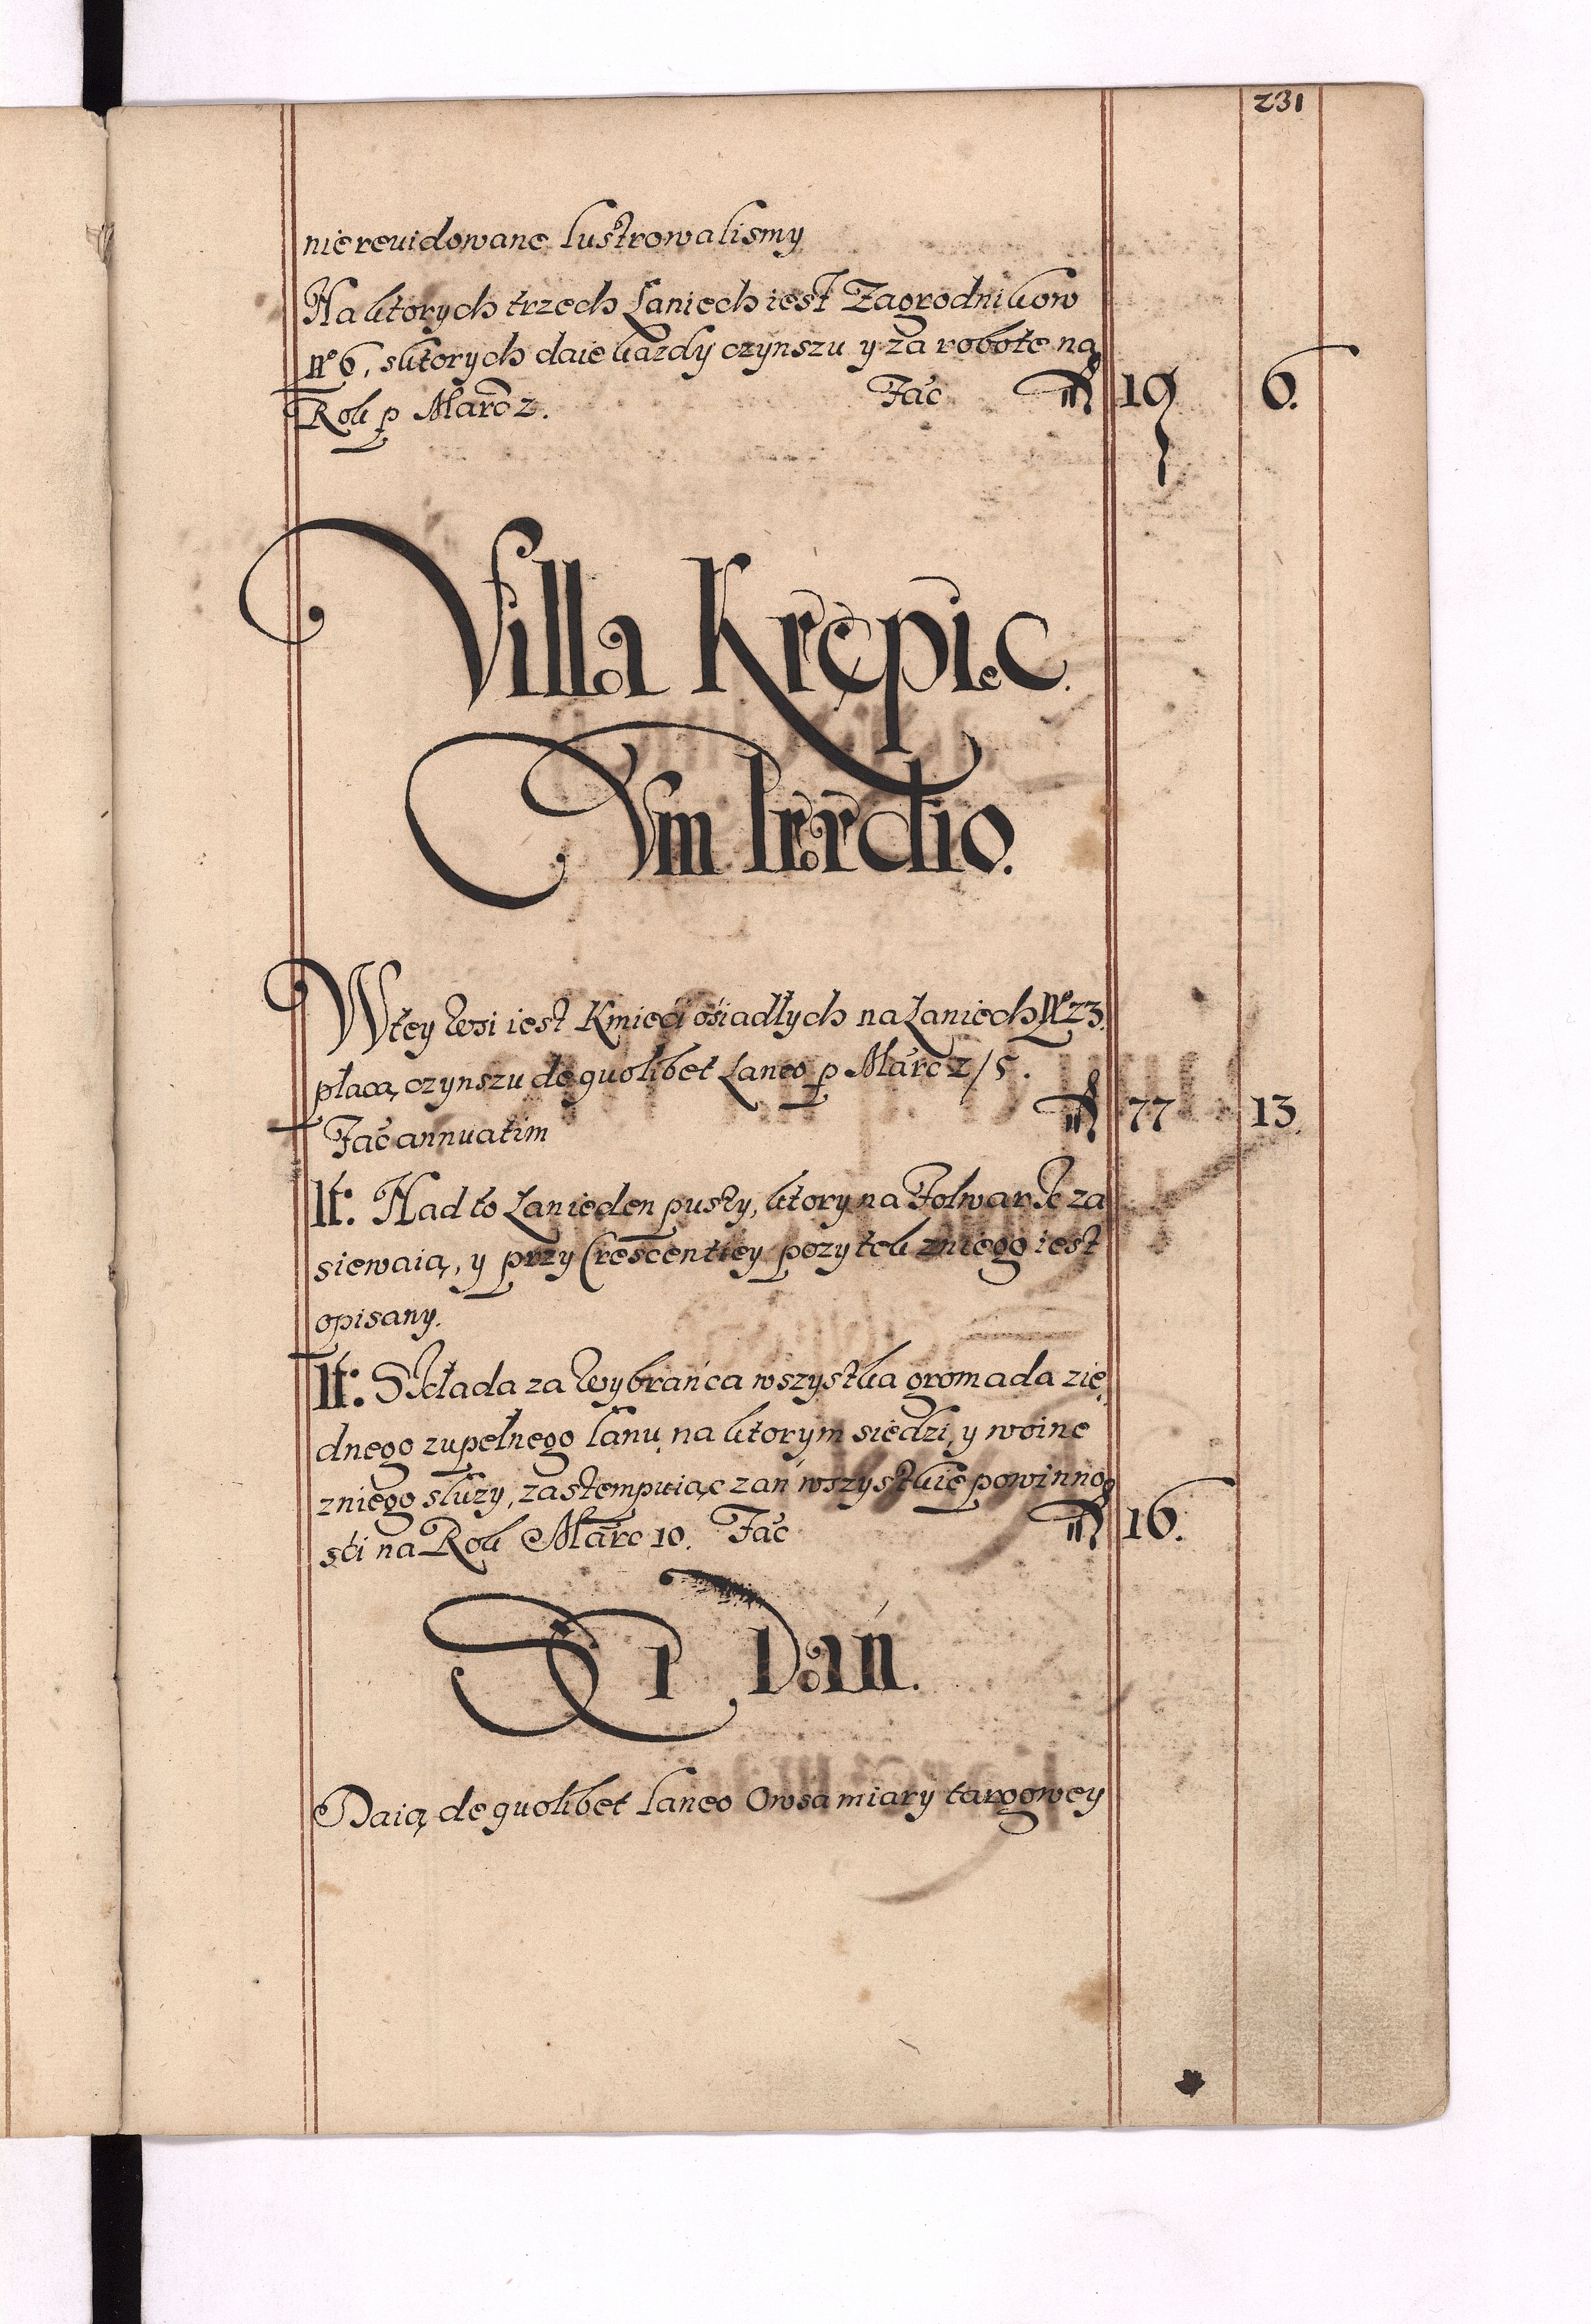 231
nierevidowane lustrowalismy
Na ktorych trzech Łaniech iest Zagrodnikow
No 6, sktorych daie kazdy czynszu y za robote na
Rok p Marc 2. Fac fl 19 6.
Villa Krępiec.
Cum Prædio.
W tey wsi iest Kmieci ośiadłych na Łaniech No 23.
płacą czynszu de quolibet Laneo p Marc 2/5.
Fac annuatim fl 77 13.
It: Nad to Łan ieden pusty, ktory na Folwark za
siewaią, y przy Crescentiey pozytek zniego iest
opisany.
It: Składa za wybrańca wszystka gromada zie
dnego zupełnego łanu, na ktorym siedzi, y woine
zniego służy, zastempuiąc zań wszystkie powinno
sci na Rok Marc 10. Fac fl 16.
Dań.
Daią de quolibet Laneo Owsa miary targowey